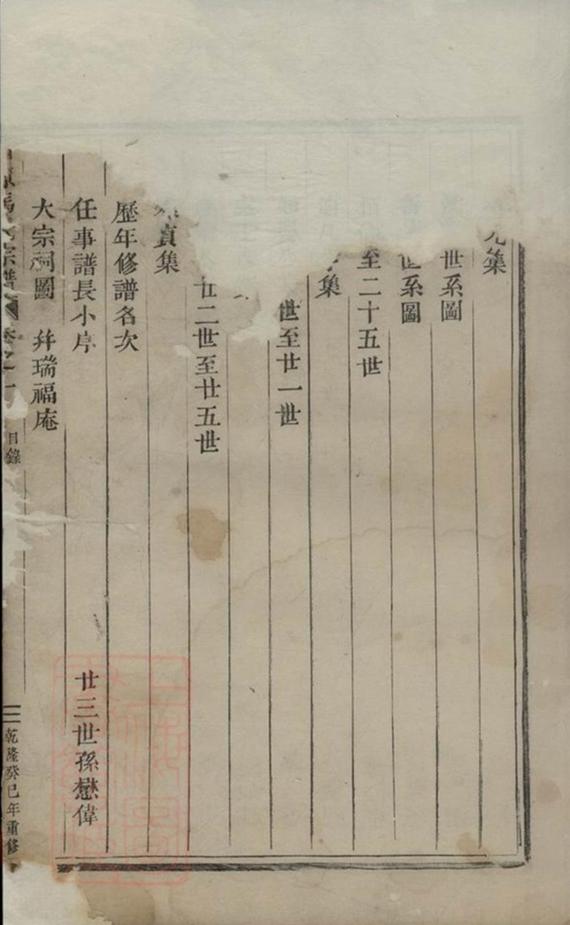 元集
世系圖
世系圖
至二十五世
集
世至廿一世
廿二世至廿五世
貞集
歷年修譜名次
任事譜長小序 廿三世孫懋偉
大宗祠圖 幷瑞福庵
宗譜 卷之一 目錄 三 乾隆癸巳年重修